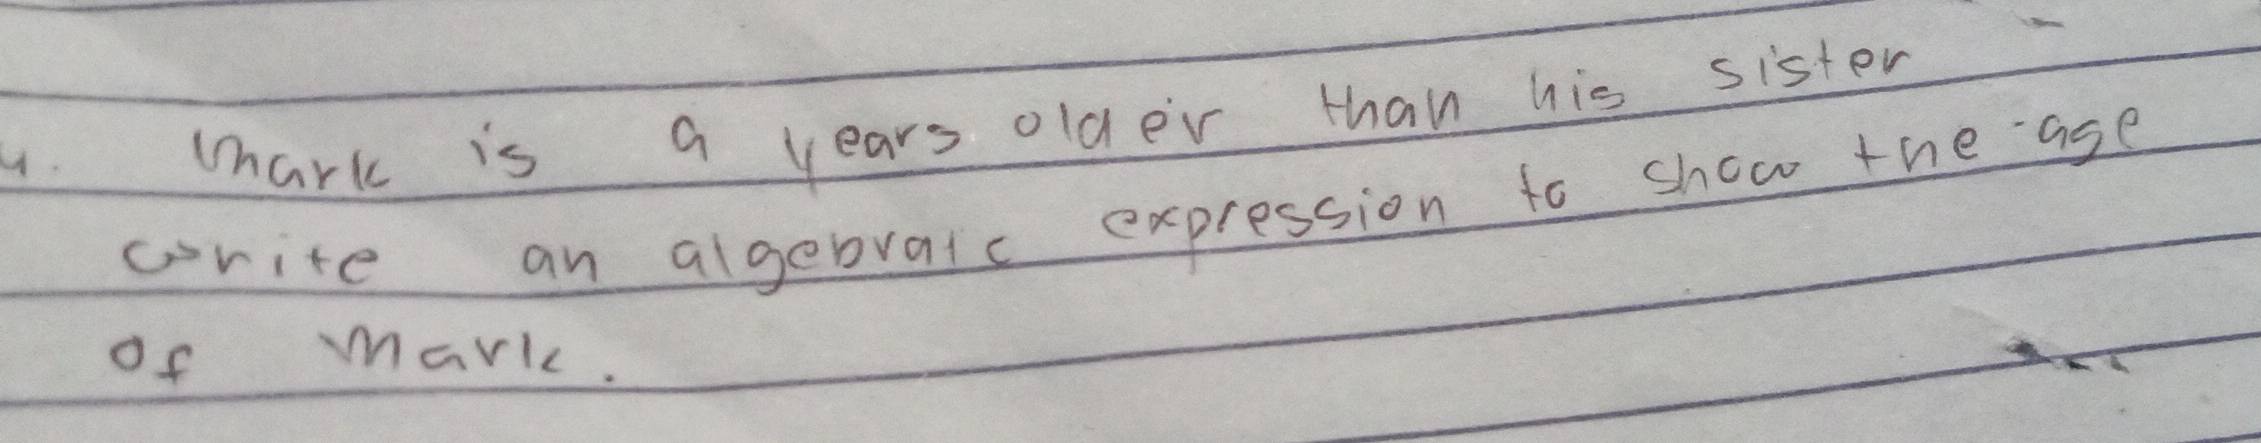 4. Mark is 9 years older than his sister
write an algebraic expression to show the age
of Mark.